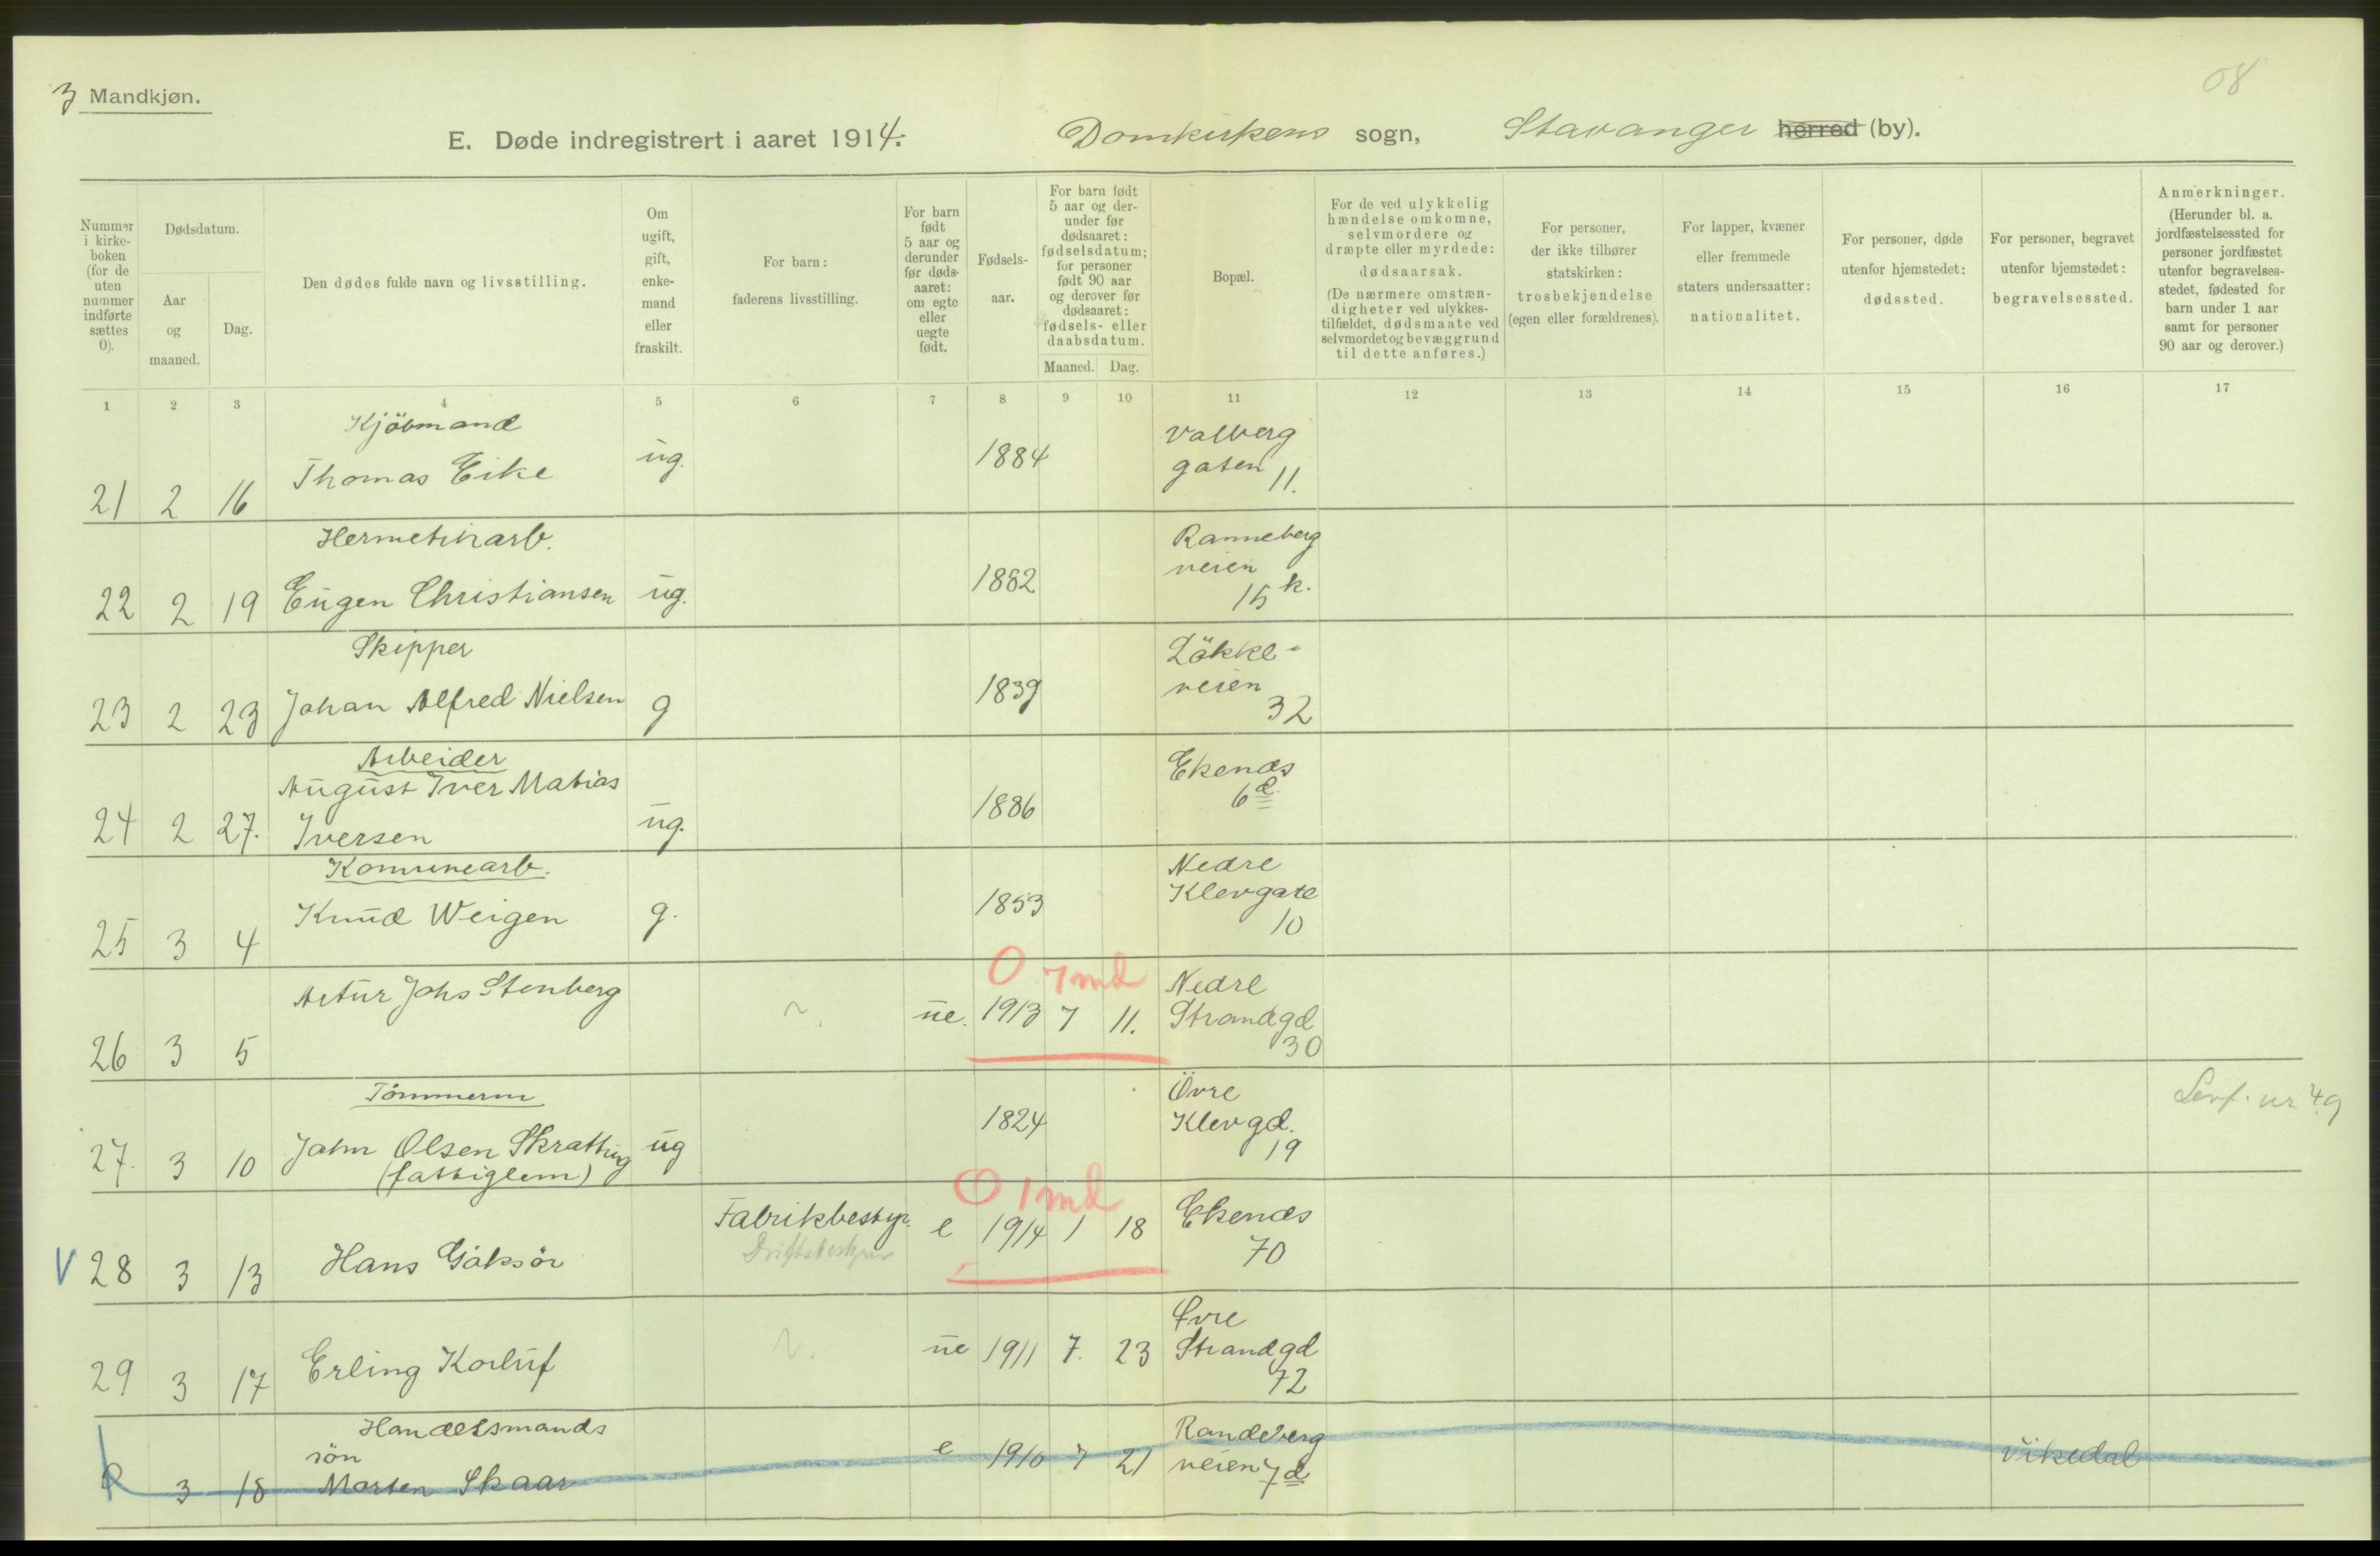 3 Mandkjøn.
08
E. Døde indregistrert i aaret 1914. Domkirkens sogn, Stavanger herred (by).
Nummer i kirke-boken (for de uten nummer indførte sættes 0).
Dødsdatum.
Aar og maaned.
Dag.
Den dødes fulde navn og livsstilling.
Om ugift, gift, enke-mand eller fraskilt.
For barn: faderens livsstilling.
For barn født 5 aar og derunder før døds-aaret: om egte eller uegte født.
Fødsels-aar.
For barn født 5 aar og der-under før dødsaaret: fødselsdatum; for personer født 90 aar og derover før dødsaaret: fødsels- eller daabsdatum.
Maaned. Dag.
Bopæl.
For de ved ulykkelig hændelse omkomne, selvmordere og dræpte eller myrdede: dødsaarsak. (De nærmere omstæn-digheter ved ulykkes-tilfældet, dødsmaate ved selvmordet og bevæggrund til dette anføres.)
For personer, der ikke tilhører statskirken: trosbekjendelse (egen eller forældrenes).
For lapper, kvæner eller fremmede staters undersaatter: nationalitet.
For personer, døde utenfor hjemstedet: dødssted.
For personer, begravet utenfor hjemstedet: begravelsessted.
Anmerkninger. (Herunder bl. a. jordfæstelsessted for personer jordfæstet utenfor begravelses-stedet, fødested for barn under 1 aar samt for personer 90 aar og derover.)
1 2 3 4 5 6 7 8 9 10 11 12 13 14 15 16 17
Kjöbmand
21 2 16 Thomas Eike ug. 1884 Valberg gaten 11.
Hermetikarb.
22 2 19 Eugen Christiansen ug. 1882 Ranneberg veien 15 k.
Skipper
23 2 23 Johan Alfred Nielsen g 1839 Lökke-veien 32
Arbeider
24 2 27. August Iver Matias Iversen ug. 1886 Ekenæs 6 d
Komunearb.
25 3 4 Knud Weigen g. 1853 Nedre Klevgate 10
0 7 md
26 3 5 Artur Johs Stenberg ue. 1913 7 11. Nedre Strandgd 30
Tömmerm
27. 3 10 John Olsen Skratting (fattiglem) ug 1824 Övre Klevgd. 19 nr 49
0 1 md
V 28 3 13 Hans Gjaksör Fabrikbestyr. Driftsbestyrer e 1914 1 18 Ekenæs 70
29 3 17 Erling Korluf ue 1911 7. 23 Øvre Strandgd 72
Handelsmands sön
0 3 18 Morten Skaar e 1910 7 21 Randeberg veien 7 d Vikedal